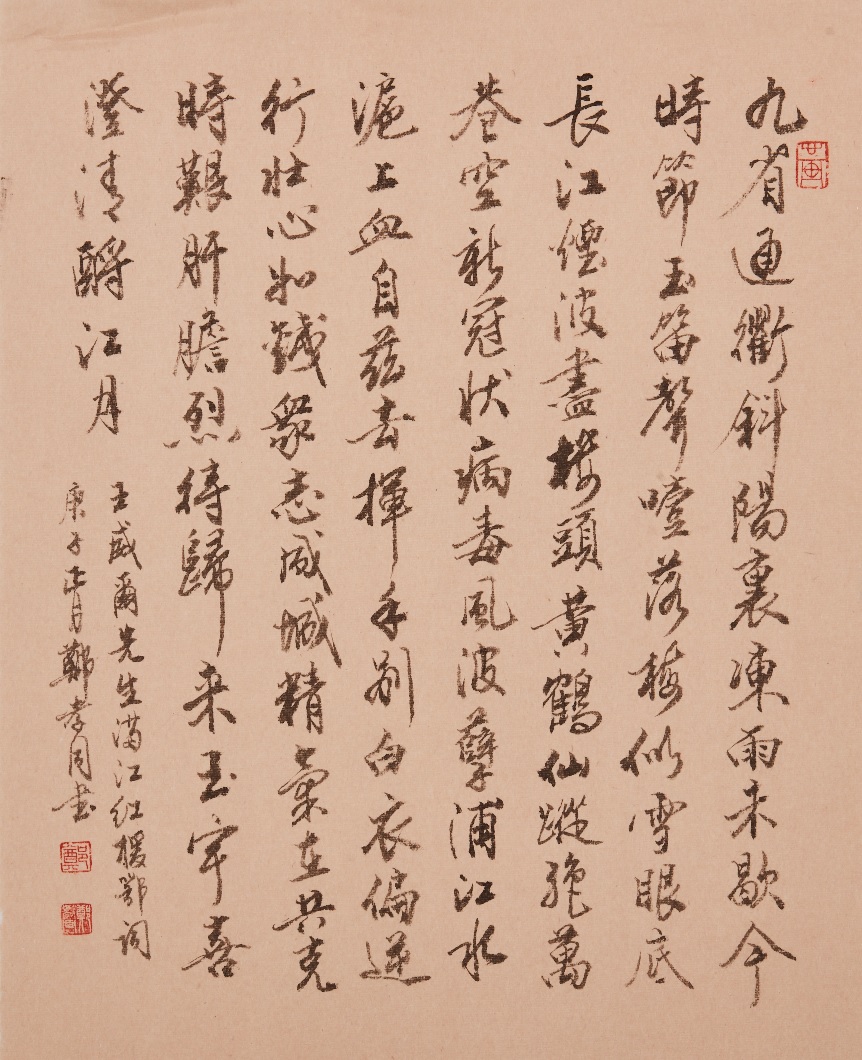 九省通衢斜陽裏凍雨未歇今
時節玉笛聲噎落梅似雪眼底
長江煙波盡樓頭黃鶴仙蹤絶萬
巷空新冠狀病毒風波孽浦江水
滬上血自茲去揮手別白衣偏逆
行壯心如鐵衆志成城精氣在共克
時艱肝膽烈待歸来玉宇喜
澄清酹江月
王威爾先生滿江紅援鄂词
庚子正月鄭孝同書